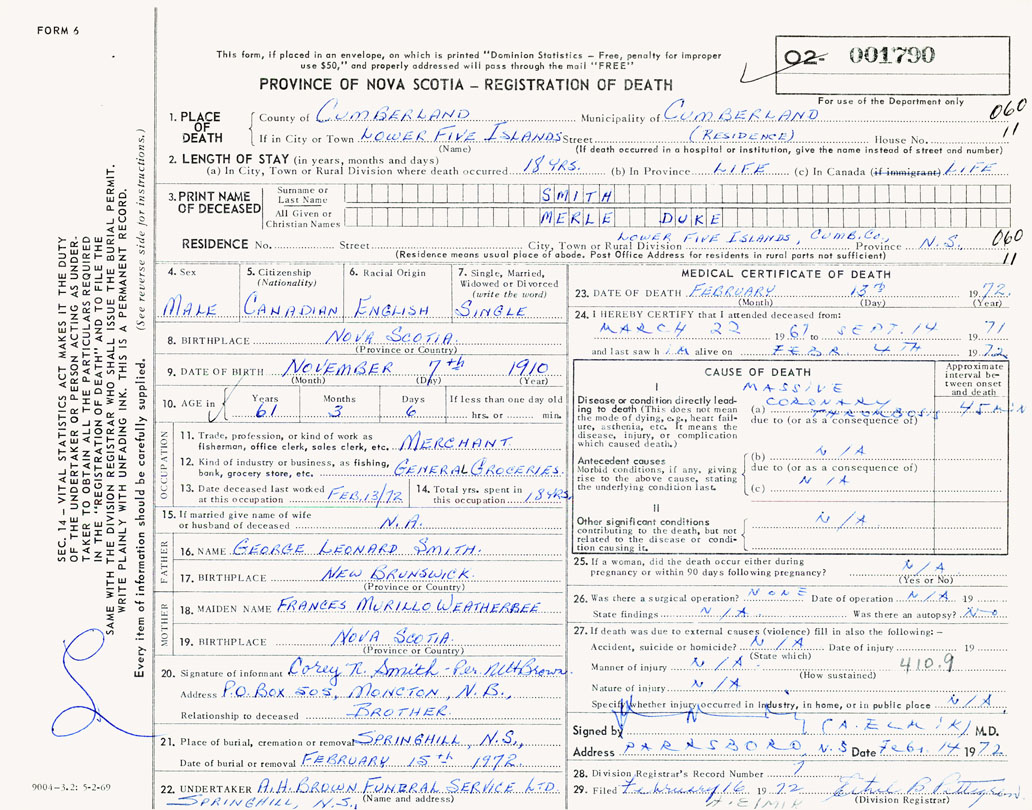 FORM 6
This form, if placed in an envelope, on which is printed "Dominion Statistics – Free, penalty for improper
use $50," and properly addressed will pass through the mail "FREE"
PROVINCE OF NOVA SCOTIA – REGISTRATION OF DEATH
02- 001790
For use of the Department only
1. PLACE OF DEATH County of CUMBERLAND Municipality of CUMBERLAND 060
If in City or Town LOWER FIVE ISLANDS Street (RESIDENCE) House No. 11
(Name) (If death occurred in a hospital or institution, give the name instead of street and number)
2. LENGTH OF STAY (in years, months and days)
(a) In City, Town or Rural Division where death occurred 18 YRS. (b) In Province LIFE (c) In Canada (if immigrant) LIFE
3. PRINT NAME OF DECEASED Surname or Last Name SMITH
All Given or Christian Names MERLE DUKE
RESIDENCE No. Street City, Town or Rural Division LOWER FIVE ISLANDS, CUMB. Co., Province N.S. 060
(Residence means usual place of abode. Post Office Address for residents in rural parts not sufficient) 11
4. Sex MALE
5. Citizenship (Nationality) CANADIAN
6. Racial Origin ENGLISH
7. Single, Married, Widowed or Divorced (write the word) SINGLE
8. BIRTHPLACE NOVA SCOTIA
(Province or Country)
9. DATE OF BIRTH NOVEMBER 7th 1910
(Month) (Day) (Year)
10. AGE in Years 61 Months 3 Days 6 If less than one day old hrs. or min.
OCCUPATION
11. Trade, profession, or kind of work as
fisherman, office clerk, sales clerk, etc. MERCHANT
12. Kind of industry or business, as fishing,
bank, grocery store, etc. GENERAL GROCERIES.
13. Date deceased last worked at this occupation FEB, 13/72
14. Total yrs. spent in this occupation 18 YRS
15. If married give name of wife
or husband of deceased N.A.
FATHER
16. NAME GEORGE LEONARD SMITH.
17. BIRTHPLACE NEW BRUNSWICK.
(Province or Country)
MOTHER
18. MAIDEN NAME FRANCES MURILLO WEATHERBEE
19. BIRTHPLACE NOVA SCOTIA.
(Province or Country)
20. Signature of informant Corey R. Smith - Per Brown
Address P.O. BOX 505, MONCTON, N.B.,
Relationship to deceased BROTHER.
21. Place of burial, cremation or removal SPRINGHILL, N.S.,
Date of burial or removal FEBRUARY 15TH 1972.
22. UNDERTAKER A.H. BROWN FUNERAL SERVICE LTD.
SPRINGHILL, N.S., (Name and address)
MEDICAL CERTIFICATE OF DEATH
23. DATE OF DEATH FEBRUARY 13th 1972.
(Month) (Day) (Year)
24. I HEREBY CERTIFY that I attended deceased from:
MARCH 22 1967 to SEPT. 14 1971
and last saw him alive on FEBR 4TH 1972
CAUSE OF DEATH
Approximate interval between onset and death
I
Disease or condition directly leading to death (This does not mean the mode of dying, e.g., heart failure, asthenia, etc. It means the disease, injury, or complication which caused death.)
(a) MASSIVE CORONARY THROMBOSIS 45 MIN
due to (or as a consequence of)
Antecedent causes
Morbid conditions, if any, giving rise to the above cause, stating the underlying condition last.
(b) N/A
due to (or as a consequence of)
(c) N/A
II
Other significant conditions
contributing to the death, but not related to the disease or condition causing it. N/A
25. If a woman, did the death occur either during
pregnancy or within 90 days following pregnancy? N/A
(Yes or No)
26. Was there a surgical operation? NONE Date of operation N/A 19
State findings N/A Was there an autopsy? No
27. If death was due to external causes (violence) fill in also the following: –
Accident, suicide or homicide? N/A Date of injury 19
(State which)
Manner of injury N/A 410.9
(How sustained)
Nature of injury N/A
Specify whether injury occurred in industry, in home, or in public place N/A
Signed by (A. ELMIK) M.D.
Address PARRSBORO, N.S Date Feb. 14 1972
28. Division Registrar's Record Number 7
29. Filed February 16 1972
(Division Registrar)
SEC. 14 – VITAL STATISTICS ACT MAKES IT THE DUTY
OF THE UNDERTAKER OR PERSON ACTING AS UNDER-
TAKER TO OBTAIN ALL THE PARTICULARS REQUIRED
IN THE "REGISTRATION OF DEATH" AND TO FILE THE
SAME WITH THE DIVISION REGISTRAR WHO SHALL ISSUE THE BURIAL PERMIT.
WRITE PLAINLY WITH UNFADING INK. THIS IS A PERMANENT RECORD.
Every item of information should be carefully supplied. (See reverse side for instructions.)
9004-3.2: 5-2-69